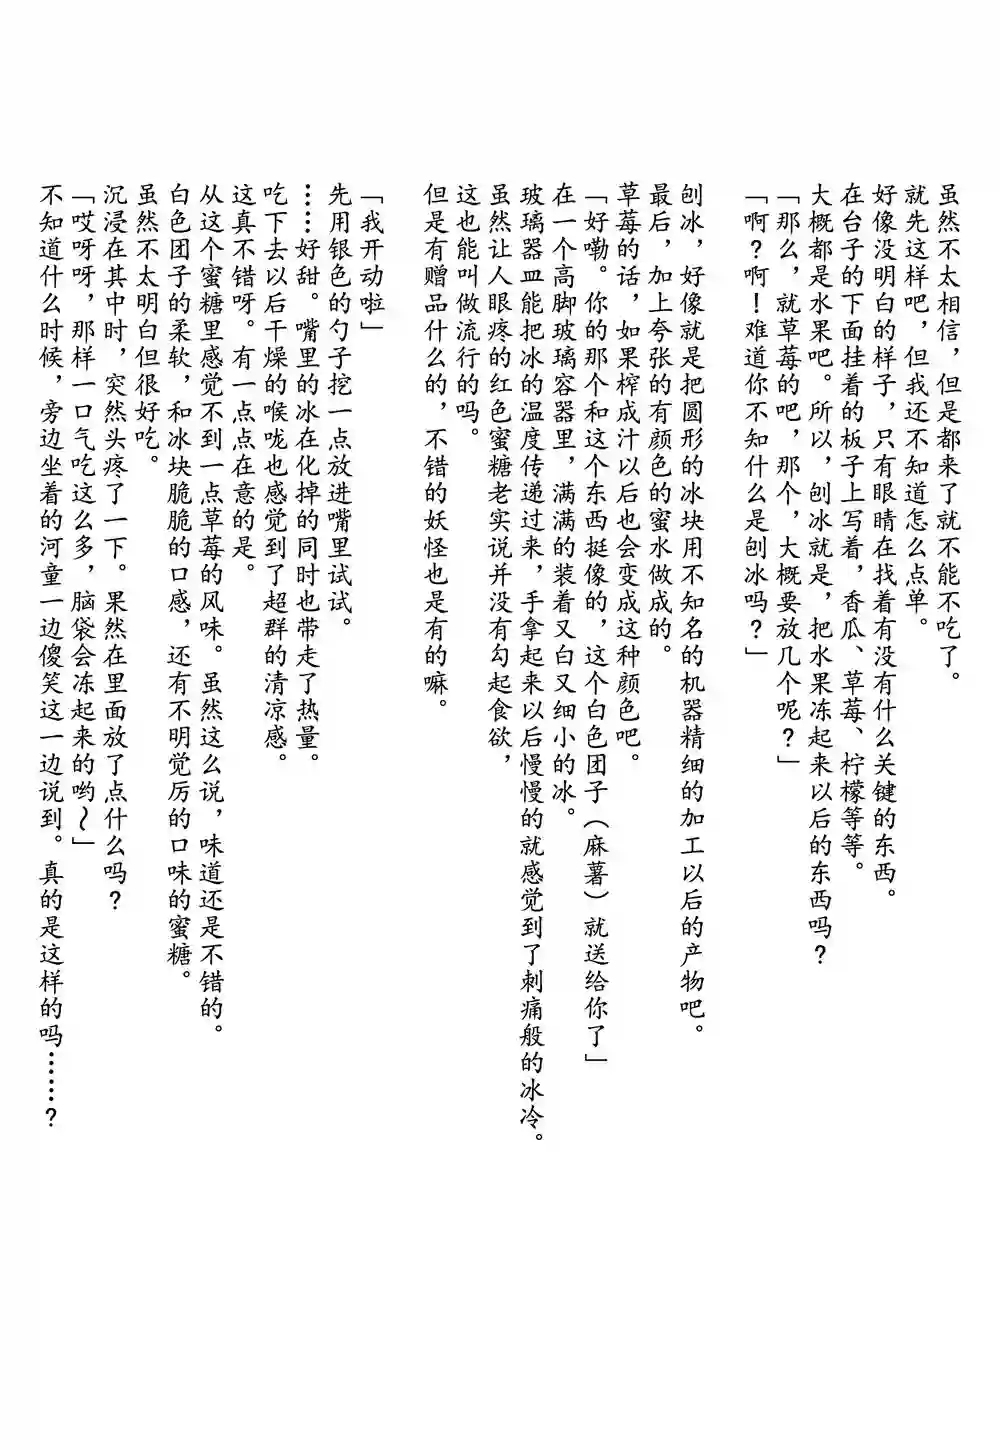 虽然不太相信，但是都来了就不能不吃了。
就先这样吧，但我还不知道怎么点单。
好像没明白的样子，只有眼睛在找着有没有什么关键的东西。
在台子的下面挂着的板子上写着，香瓜、草莓、柠檬等等。
大概都是水果吧。所以，刨冰就是，把水果冻起来以后的东西吗？
「那么，就草莓的吧，那个，大概要放几个呢？」
「啊？啊！难道你不知什么是刨冰吗？」
刨冰，好像就是把圆形的冰块用不知名的机器精细的加工以后的产物吧。
最后，加上夸张的有颜色的蜜水做成的。
草莓的话，如果榨成汁以后也会变成这种颜色吧。
「好嘞。你的那个和这个东西挺像的，这个白色团子（麻薯）就送给你了」
在一个高脚玻璃容器里，满满的装着又白又细小的冰。
玻璃器皿能把冰的温度传递过来，手拿起来以后慢慢的就感觉到了刺痛般的冰冷。
虽然让人眼疼的红色蜜糖老实说并没有勾起食欲，
这也能叫做流行的吗。
但是有赠品什么的，不错的妖怪也是有的嘛。
「我开动啦」
先用银色的勺子挖一点放进嘴里试试。
……好甜。嘴里的冰在化掉的同时也带走了热量。
吃下去以后干燥的喉咙也感觉到了超群的清凉感。
这真不错呀。有一点点在意的是。
从这个蜜糖里感觉不到一点草莓的风味。虽然这么说，味道还是不错的。
白色团子的柔软，和冰块脆脆的口感，还有不明觉厉的口味的蜜糖。
虽然不太明白但很好吃。
沉浸在其中时，突然头疼了一下。果然在里面放了点什么吗？
「哎呀呀，那样一口气吃这么多，脑袋会冻起来的哟～」
不知道什么时候，旁边坐着的河童一边傻笑这一边说到。真的是这样的吗……？